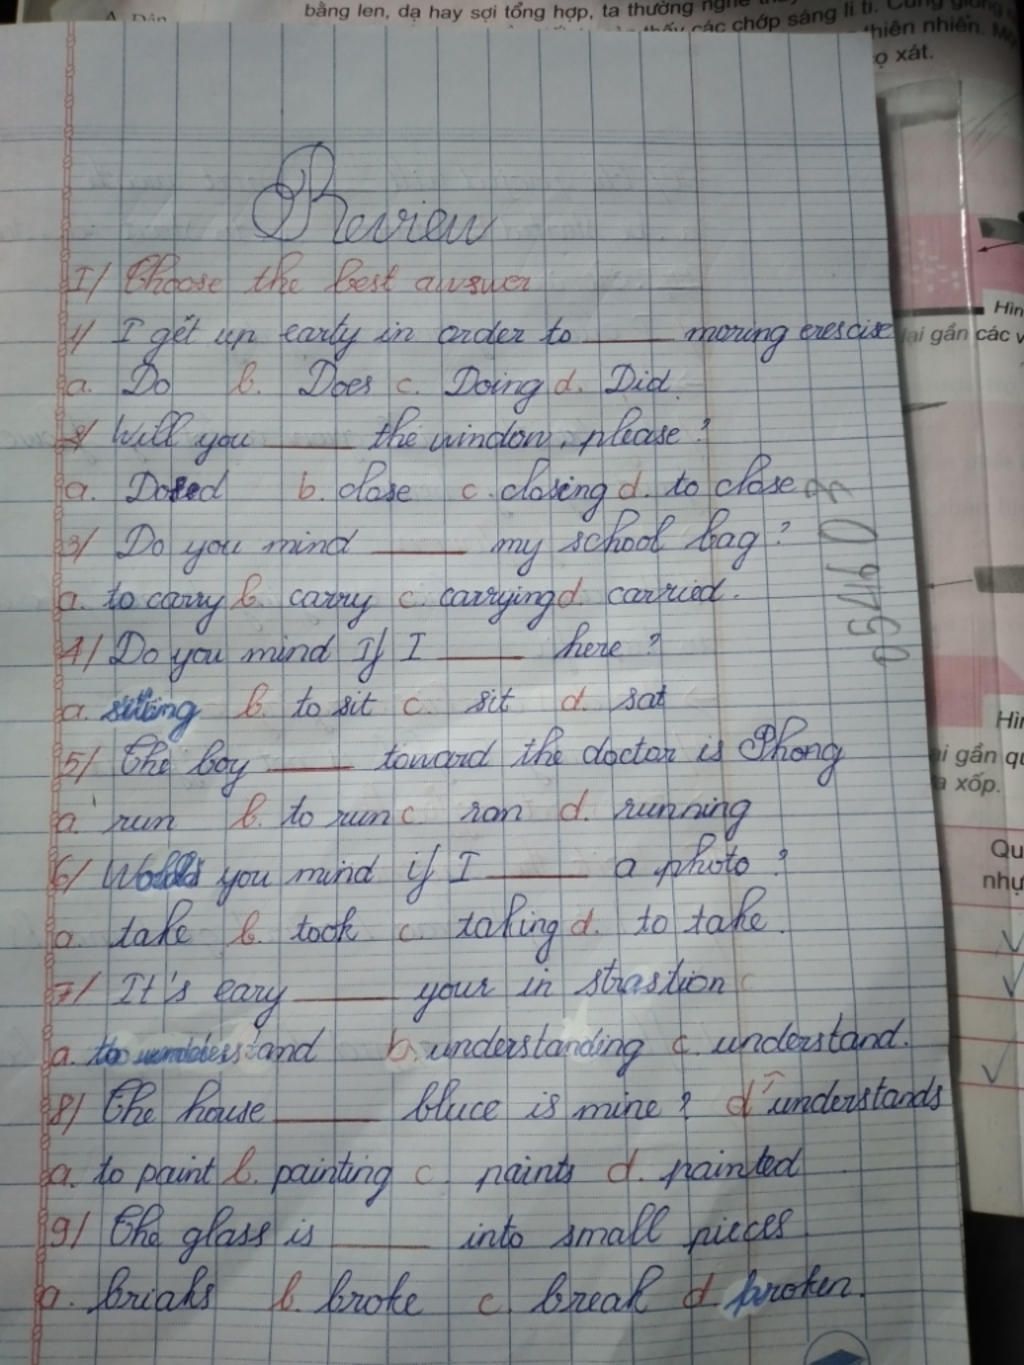 bằng len, dạ hay sợi tổng hợp, ta thường nghe
thấy các chớp sáng li ti.
thiên nhiên.
cọ xát.
Review
I/ Choose the best answer
1/ I get up earty in order to ____ moring erescise
a. Do b. Does c. Doing d. Did.
2/ Will you ____ the window, please?
a. Dosed b. close c. closing d. to close
3/ Do you mind ____ my school bag?
a. to carry b. carry c. carrying d. carried.
4/ Do you mind If I ____ here?
a. sitting b. to sit c. sit d. sat
5/ The boy ____ toward the doctor is Phong
a. run b. to run c. ran d. running
6/ you mind if I ____ a photo?
a. take b. took c. taking d. to take.
7/ It's eary ____ your in strastion
a. to understand b. understanding c. understand.
8/ The house ____ bluce is mine? d understands
a. to paint b. painting c. paints d. painted
9/ The glass is ____ into small pieces
a. briaks b. broke c. break d broken.
Hìn
lại gần các v
Hìn
ại gần qu
a xốp.
Qu
như